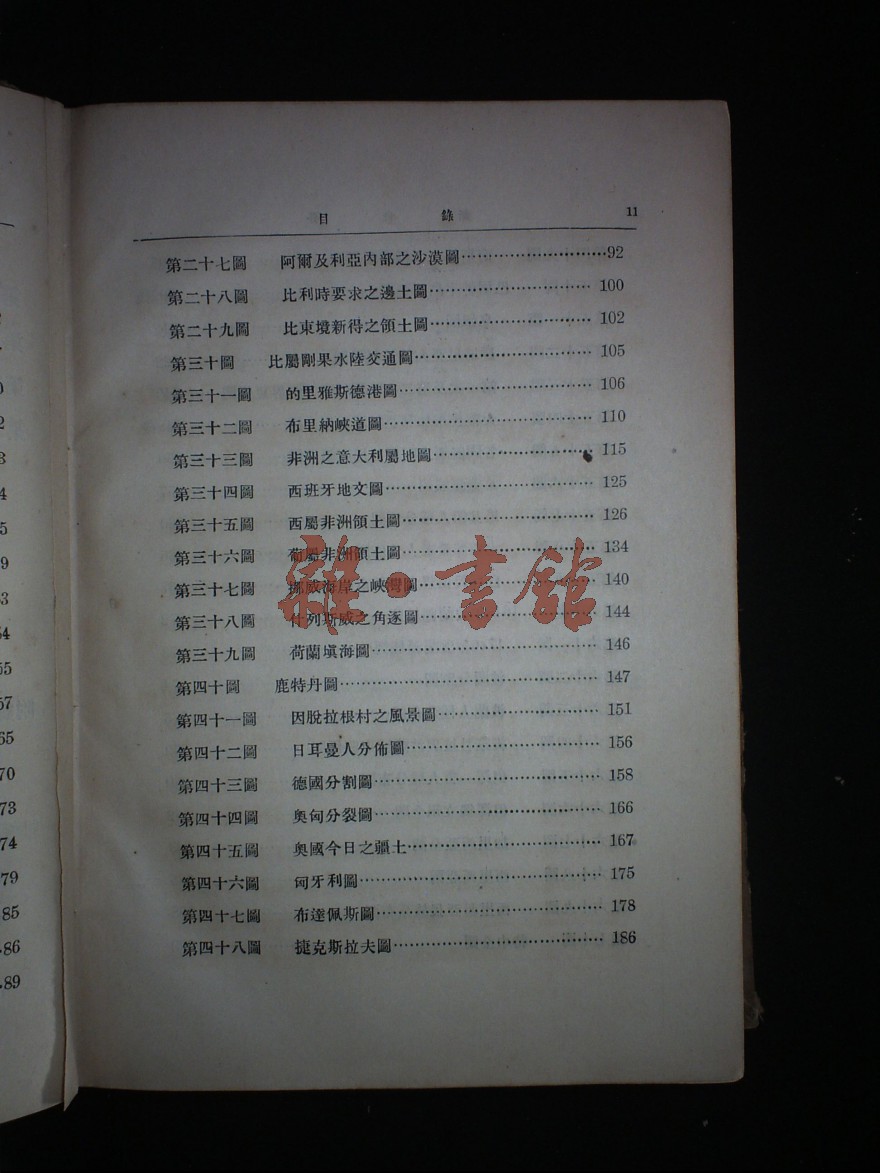 目錄 11
第二十七圖 阿爾及利亞內部之沙漠圖 92
第二十八圖 比利時要求之邊土圖 100
第二十九圖 比東境新得之領土圖 102
第三十圖 比屬剛果水陸交通圖 105
第三十一圖 的里雅斯德港圖 106
第三十二圖 布里納峽道圖 110
第三十三圖 非洲之意大利屬地圖 115
第三十四圖 西班牙地文圖 125
第三十五圖 西屬非洲領土圖 126
第三十六圖 葡屬非洲領土圖 134
第三十七圖 挪威海岸之峽灣圖 140
第三十八圖 什列斯威之角逐圖 144
第三十九圖 荷蘭塡海圖 146
第四十圖 鹿特丹圖 147
第四十一圖 因脫拉根村之風景圖 151
第四十二圖 日耳曼人分佈圖 156
第四十三圖 德國分割圖 158
第四十四圖 奧匈分裂圖 166
第四十五圖 奧國今日之疆土 167
第四十六圖 匈牙利圖 175
第四十七圖 布達佩斯圖 178
第四十八圖 捷克斯拉夫圖 186
雜·書館